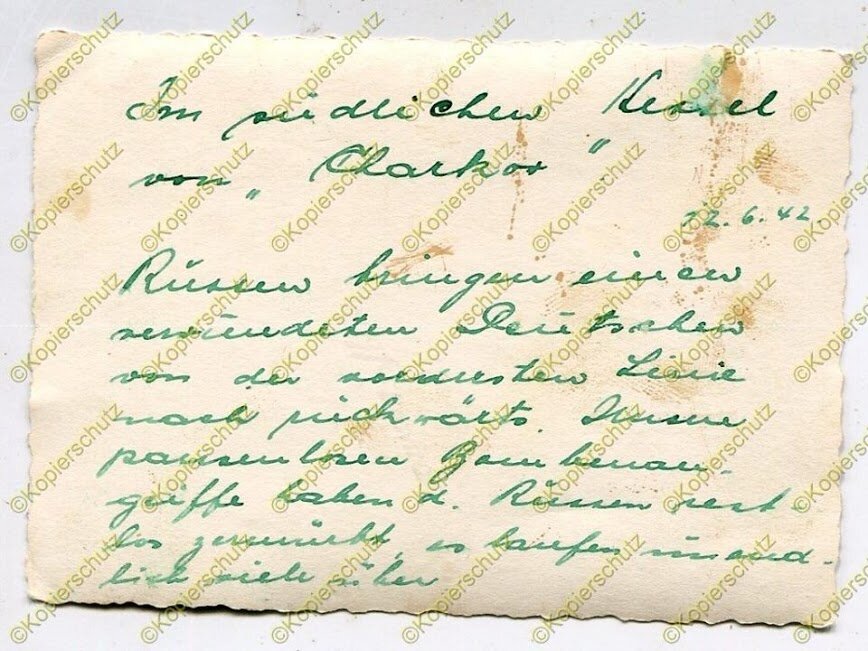 Im südlichen Kessel
von „Charkov“.
22.6.42.
Russen bringen einen
verwundeten Deutschen
von der vordersten Linie
nach rückwärts. Unsere
pausenlosen Bombenan-
griffe haben d. Russen rest-
los zermürbt, es laufen unend-
lich viele über
©Kopierschutz